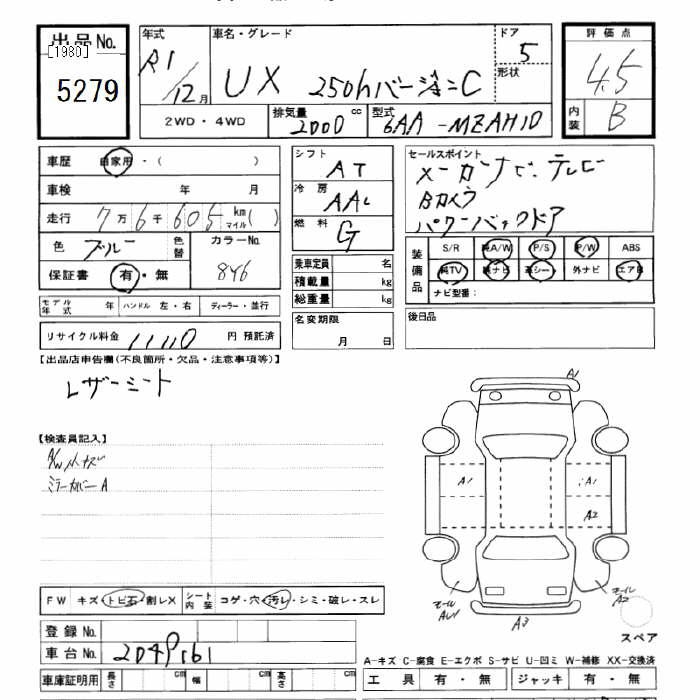 出品No.
[1980]
5279
年式
R1/12月
車名・グレード
UX 250hバージョンC
ドア 5
形状
2WD・4WD
排気量 2000 cc
型式 6AA-MZAH10
評価点
4.5
内装 B
車歴 自家用・( )
車検 年 月
走行 7万6千605 km マイル( )
色 ブルー
色替
カラーNo. 8Y6
保証書 有・無
モデル年式 年 ハンドル 左・右 ディーラー・並行
リサイクル料金 11110 円 預託済
シフト AT
冷房 AAC
燃料 G
乗車定員 名
積載量 kg
総重量 kg
名変期限
月 日
セールスポイント
メーカーナビ・テレビ
Bカメラ
パワーバックドア
装備品
S/R 純A/W P/S P/W ABS
純TV 純ナビ 革シート 外ナビ エアB
ナビ型番:
後日品
【出品店申告欄(不良箇所・欠品・注意事項等)】
レザーシート
【検査員記入】
A/W小キズ
ミラーカバーA
A1
A1
A1
A2
A3
モール
モール
A2
スペア
FW キズ・トビ石・割レX
シート内装 コゲ・穴・汚レ・シミ・破レ・スレ
登録No.
車台No.
車庫証明用 長さ cm 幅 cm 高さ cm
A-キズ C-腐食 E-エクボ S-サビ U-凹ミ W-補修 XX-交換済
工具 有・無 ジャッキ 有・無